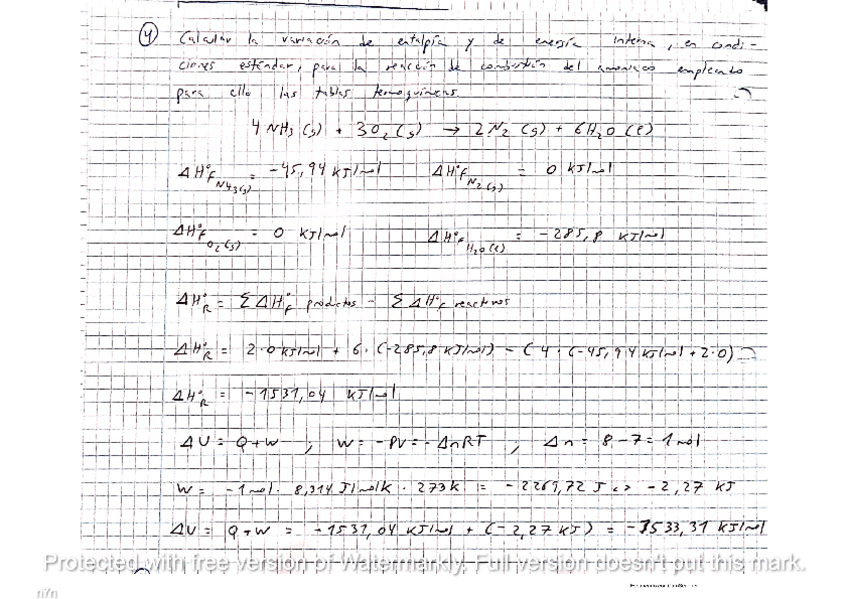 4 Calcular la variación de entalpía y de energía interna, en condi-
ciones estándar, para la reacción de combustión del amoniaco empleando
para ello las tablas termoquímicas.
4 NH3 (g) + 3O2 (g) → 2N2 (g) + 6H2O (l)
ΔH°f NH3(g) = -45,94 KJ/mol ΔH°f N2(g) = 0 KJ/mol
ΔH°f O2(g) = 0 KJ/mol ΔH°f H2O(l) = -285,8 KJ/mol
ΔH°R = Σ ΔH°f productos - Σ ΔH°f reactivos
ΔH°R = 2·0 KJ/mol + 6·(-285,8 KJ/mol) - (4·(-45,94 KJ/mol + 2·0)
ΔH°R = -1531,04 KJ/mol
ΔU = Q+W ; W = -PV = -ΔnRT ; Δn = 8-7 = 1 mol
W = -1mol · 8,314 J/molK · 273K = -2269,72 J <> -2,27 KJ
ΔU = Q+W = -1531,04 KJ/mol + (-2,27 KJ) = -1533,31 KJ/mol
Protected with free version of Watermarkly. Full version doesn't put this mark.